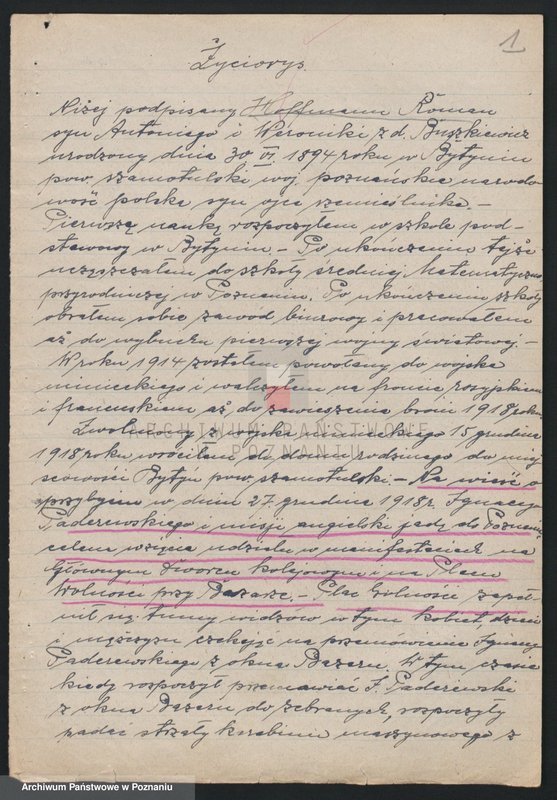 1
Życiorys.
Niżej podpisany Hoffmann Roman
syn Antoniego i Weroniki z d. Buszkiewicz
urodzony dnia 30 VI. 1894 roku w Bytyniu
pow. szamotulski woj. poznańskie narodo-
wość polska syn ojca rzemieślnika. –
Pierwszą naukę rozpocząłem w szkole pod-
stawowej w Bytyniu – Po ukończeniu tejże
uczęszczałem do szkoły średniej Matematyczno
przyrodniczej w Poznaniu. Po ukończeniu szkoły
obrałem sobie zawód biurowy i pracowałem
aż do wybuchu pierwszej wojny światowej. –
W roku 1914 zostałem powołany do wojska
niemieckiego i walczyłem na froncie rosyjskim
i francuskiem aż do zawieszenia broni 1918 roku
Zwolniony z wojska niemieckiego 15 grudnia
1918 roku wróciłem do domu rodzinnego do miej-
scowości Bytyń pow. szamotulski – Na wieść o
przybyciu w dniu 27. grudnia 1918 r. Ignacego
Paderewskiego i misji angielski jadę do Poznania
celem wzięcia udziału w manifestacjach na
Głównym Dworcu kolejowym i na Placu
Wolności przy Bazarze. – Plac Wolności zapeł-
nił się tłumy widzów w tym kobiet, dzieci
i mężczyzn czekając na przemówienie Ignacego
Paderewskiego z okna Bazaru. W tym czasie
kiedy rozpoczął przemawiać I. Paderewski
z okna Bazaru do zebranych, rozpoczęły
padać strzały karabinu maszynowego z
ARCHIWUM PAŃSTWOWE
POZNAŃ
Archiwum Państwowe w Poznaniu